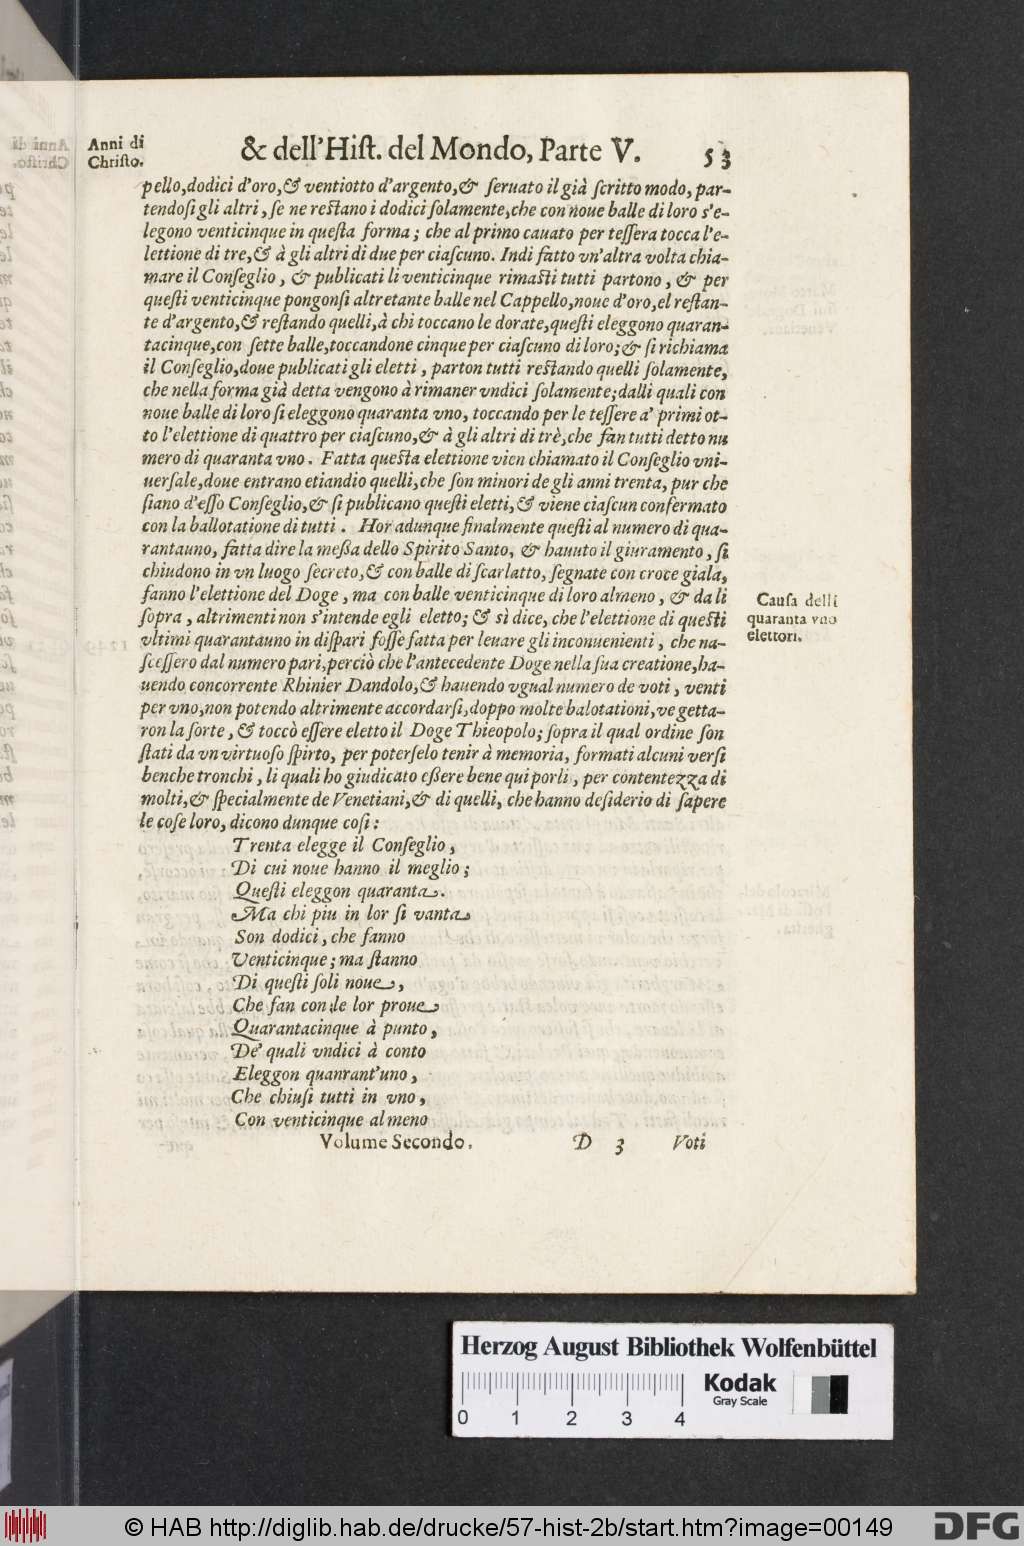 Anni di
Christo.
& dell'Hiſt. del Mondo, Parte V. 53
pello, dodici d'oro, & ventiotto d'argento, & ſeruato il già ſcritto modo, par-
tendoſi gli altri, ſe ne reſtano i dodici ſolamente, che con noue balle di loro s'e-
legono venticinque in queſta forma; che al primo cauato per teſſera tocca l'e-
lettione di tre, & à gli altri di due per ciaſcuno. Indi fatto vn'altra volta chia-
mare il Conſeglio, & publicati li venticinque rimaſti tutti partono, & per
queſti venticinque pongonſi altretante balle nel Cappello, noue d'oro, el reſtan-
te d'argento, & reſtando quelli, à chi toccano le dorate, queſti eleggono quaran-
tacinque, con ſette balle, toccandone cinque per ciaſcuno di loro; & ſi richiama
il Conſeglio, doue publicati gli eletti, parton tutti reſtando quelli ſolamente,
che nella forma già detta vengono à rimaner vndici ſolamente; dalli quali con
noue balle di loro ſi eleggono quaranta vno, toccando per le teſſere a' primi ot-
to l'elettione di quattro per ciaſcuno, & à gli altri di trè, che fan tutti detto nu
mero di quaranta vno. Fatta queſta elettione vien chiamato il Conſeglio vni-
uerſale, doue entrano etiandio quelli, che ſon minori de gli anni trenta, pur che
ſiano d'eſſo Conſeglio, & ſi publicano queſti eletti, & viene ciaſcun confermato
con la ballotatione di tutti. Hor adunque finalmente queſti al numero di qua-
rantauno, fatta dire la meſſa dello Spirito Santo, & hauuto il giuramento, ſi
chiudono in vn luogo ſecreto, & con balle di ſcarlatto, ſegnate con croce giala,
fanno l'elettione del Doge, ma con balle venticinque di loro almeno, & da li
ſopra, altrimenti non s'intende egli eletto; & sì dice, che l'elettione di queſti
vltimi quarantauno in diſpari foſſe fatta per leuare gli inconuenienti, che na-
ſceſſero dal numero pari, perciò che l'antecedente Doge nella ſua creatione, ha-
uendo concorrente Rhinier Dandolo, & hauendo vgual numero de voti, venti
per vno, non potendo altrimente accordarſi, doppo molte balotationi, ve getta-
ron la ſorte, & toccò eſſere eletto il Doge Thieopolo; ſopra il qual ordine ſon
ſtati da vn virtuoſo ſpirto, per poterſelo tenir à memoria, formati alcuni verſi
benche tronchi, li quali ho giudicato eſſere bene qui porli, per contentezza di
molti, & ſpecialmente de Venetiani, & di quelli, che hanno deſiderio di ſapere
le coſe loro, dicono dunque coſi:
Cauſa delli
quaranta vno
elettori.
Trenta elegge il Conſeglio,
Di cui noue hanno il meglio;
Queſti eleggon quaranta.
Ma chi piu in lor ſi vanta
Son dodici, che fanno
Venticinque; ma ſtanno
Di queſti ſoli noue,
Che fan con le lor proue
Quarantacinque à punto,
De' quali vndici à conto
Eleggon quanrant'uno,
Che chiuſi tutti in vno,
Con venticinque almeno
Volume Secondo. D 3 Voti
Herzog August Bibliothek Wolfenbüttel
Kodak
Gray Scale
0 1 2 3 4
© HAB http://diglib.hab.de/drucke/57-hist-2b/start.htm?image=00149
DFG